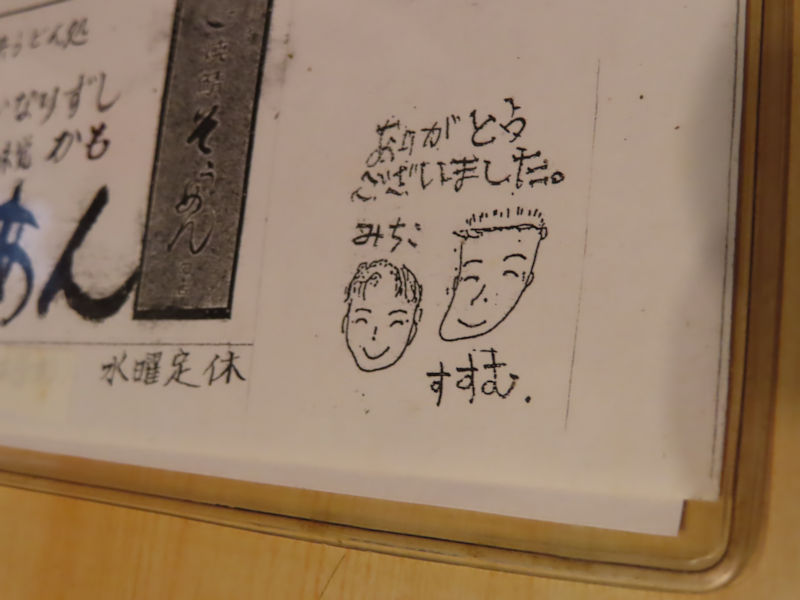 うどん処
いなりずし
かも
あん
そうめん
水曜定休
ありがとう
ございました。
みちこ
すすむ.